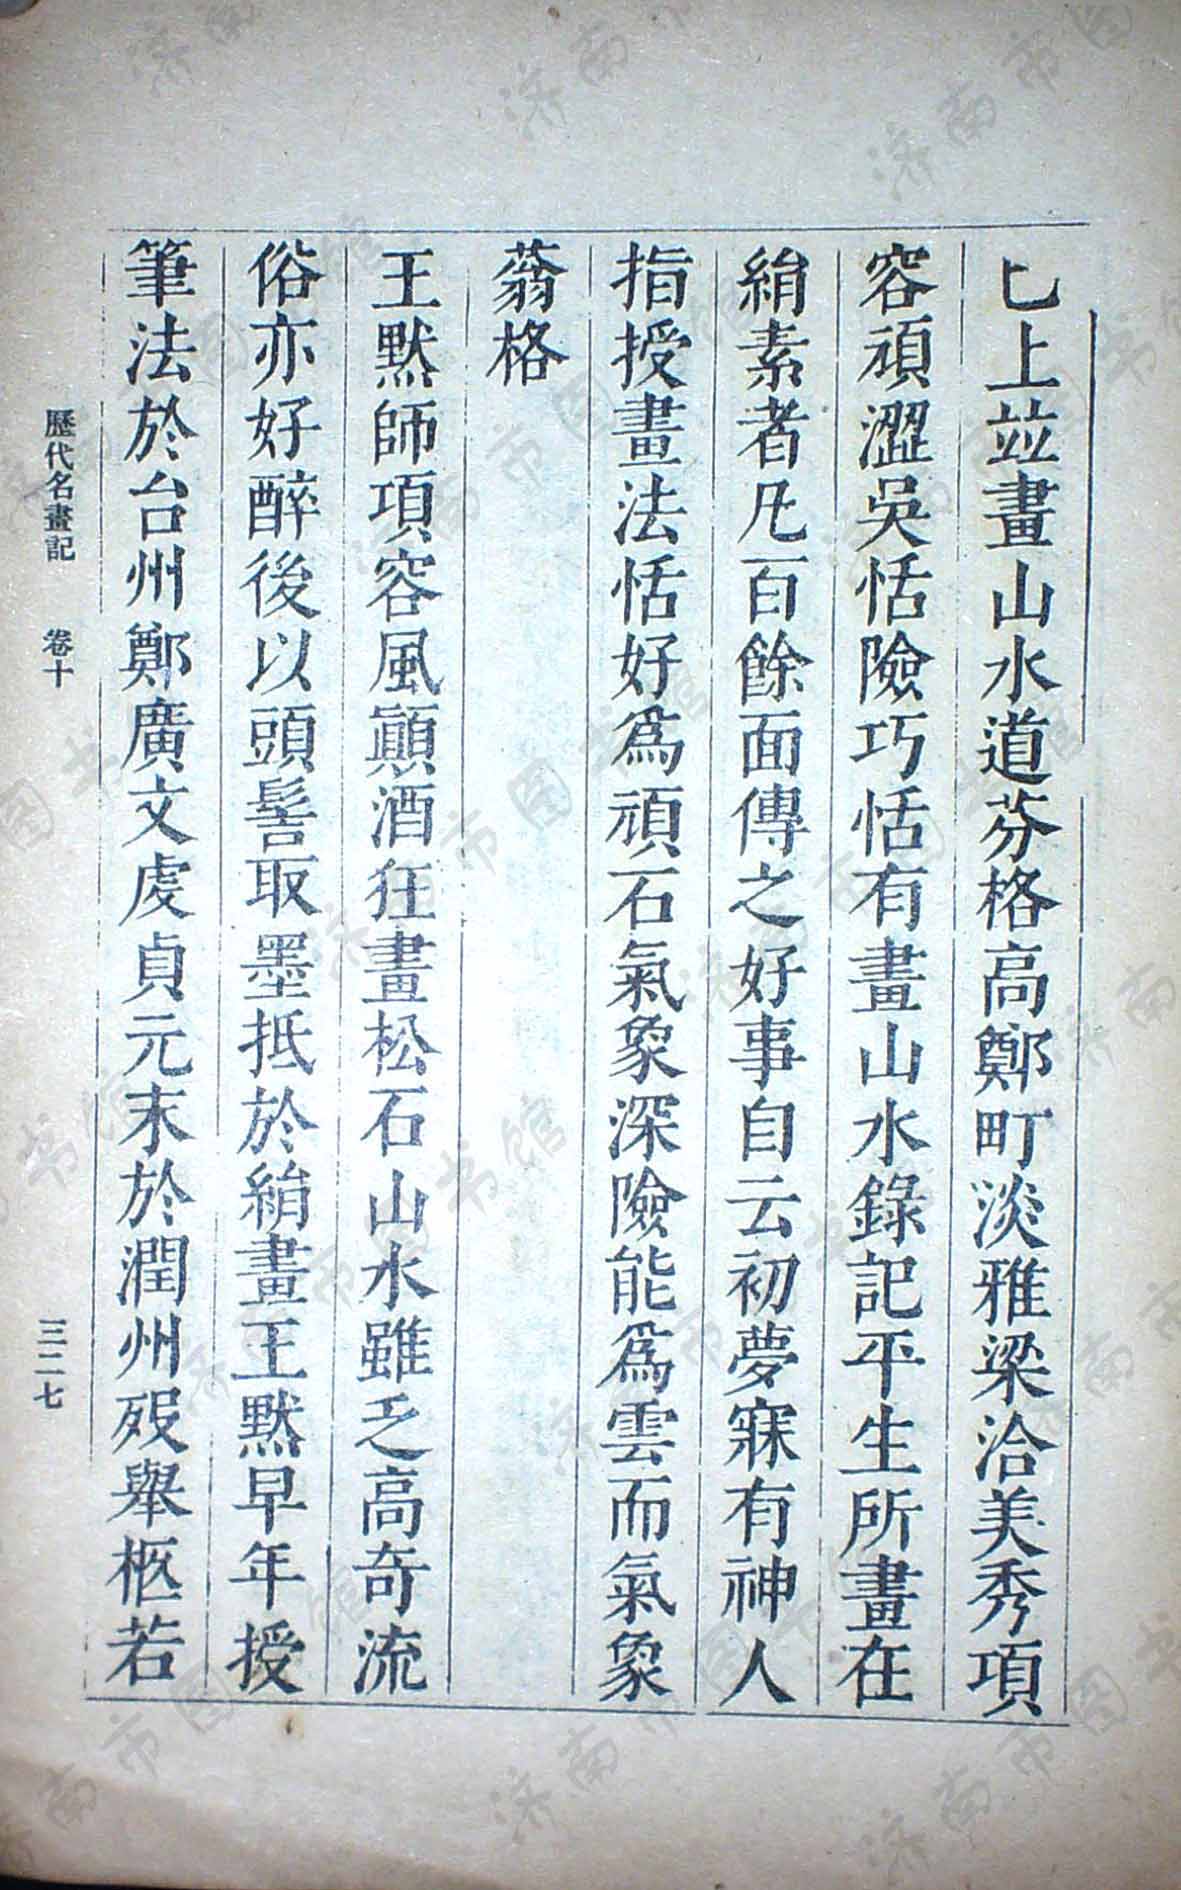 已上竝畫山水道芬格高鄭町淡雅梁洽美秀項
容頑澀吳恬險巧恬有畫山水錄記平生所畫在
絹素者凡百餘面傳之好事自云初夢寐有神人
指授畫法恬好爲頑石氣象深險能爲雲而氣象
蓊格
王默師項容風顚酒狂畫松石山水雖乏高奇流
俗亦好醉後以頭髻取墨抵於絹畫王默早年授
筆法於台州鄭廣文虔貞元末於潤州歿舉柩若
歷代名畫記 卷十 三二七
济南市图书馆